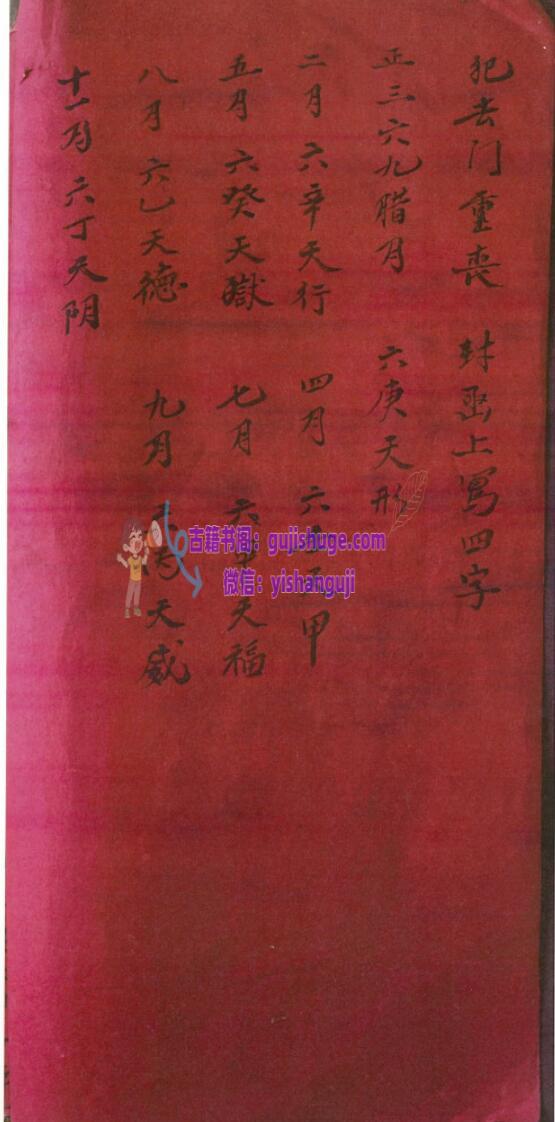 犯去门重丧 封函上写四字
正三六九腊月 六庚天形
二月 六辛天行 四月 六壬天甲
五月 六癸天獄 七月 六甲天福
八月 六乙天德 九月 天威
十一月 六丁天阴
古籍书阁：gujishuge.com
微信：yishanguji